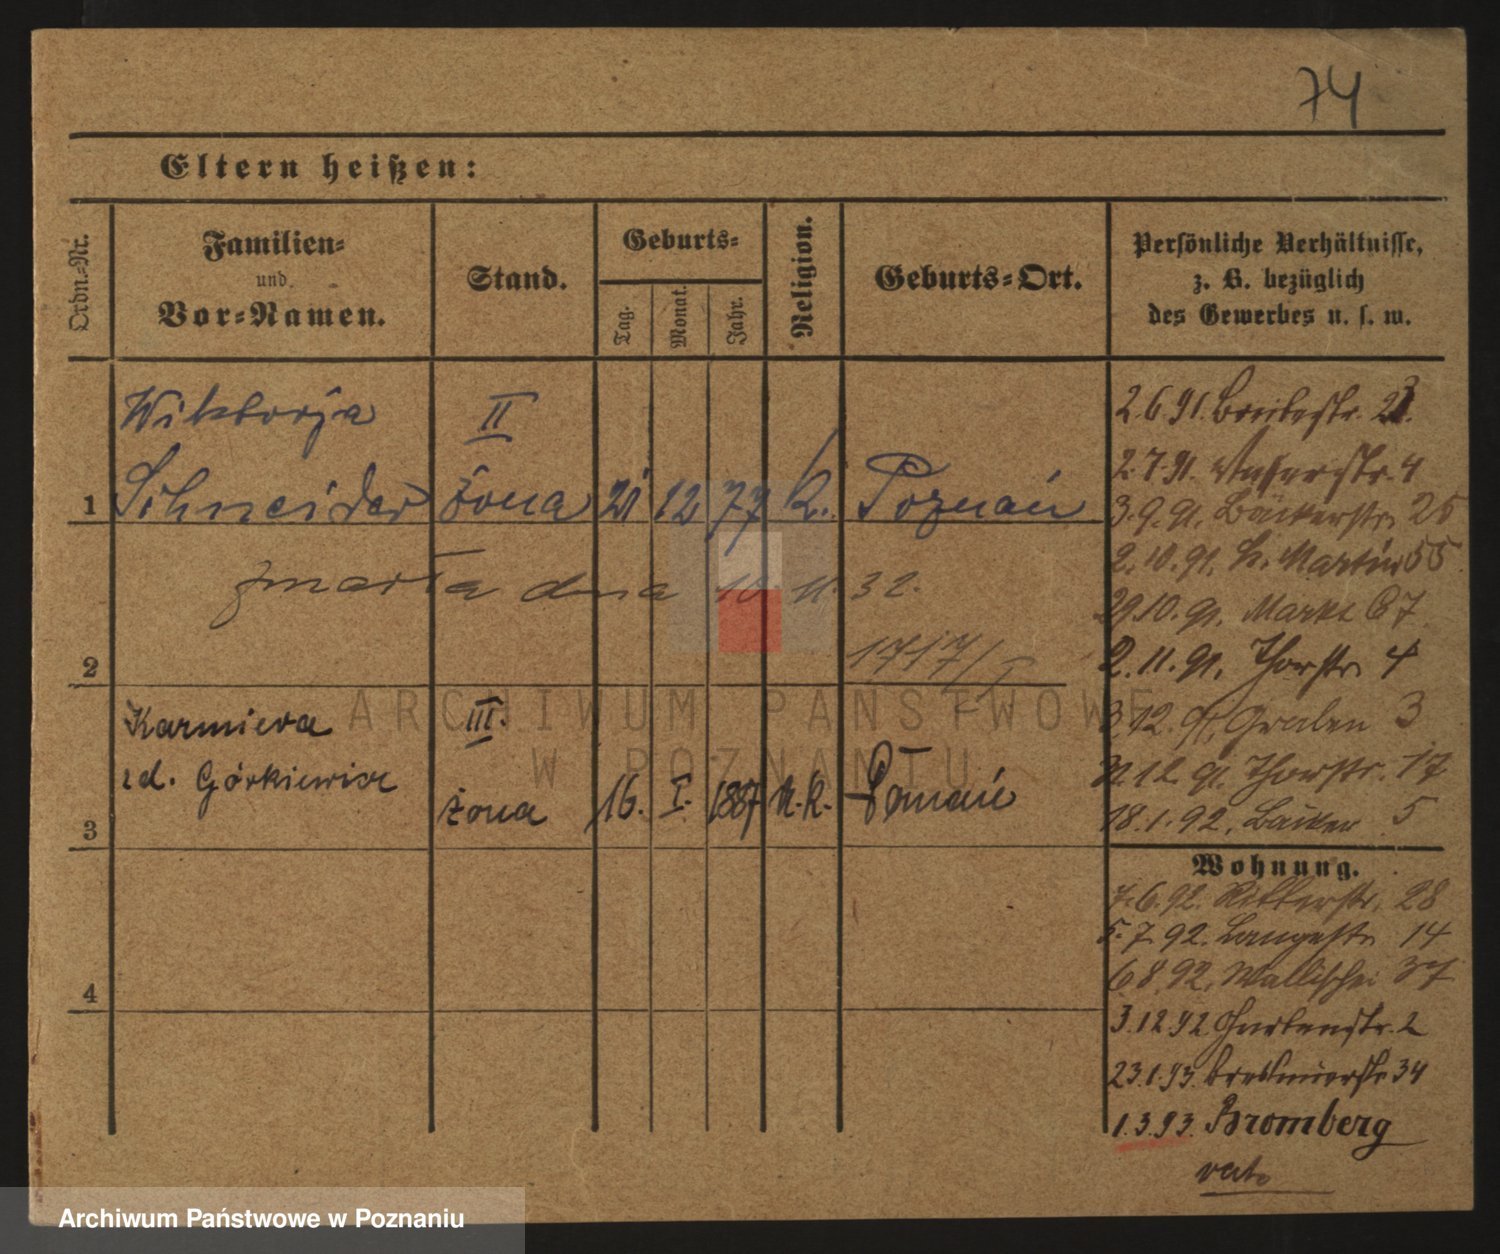 74
Eltern heißen:
Ordn.-Nr.
Familien-
und
Vor-Namen.
Stand.
Geburts-
Tag.
Monat.
Jahr.
Religion.
Geburts-Ort.
Persönliche Verhältnisse,
z. B. bezüglich
des Gewerbes u. s. w.
Wiktorja II
1 Schneider żona 21 12 77 k. Poznań
zmarła dnia 11. 32.
1717/I
2
Kazmiera III.
zd. Górkiewicz
żona 16. I. 1887 r.k. Poznań
3
4
2.6.91. Breitestr.
2.7.91. 4
3.9.91. Bäckerstr. 25
2.10.91. St. Martin 55
29.10.91. Markt 67
2.11.91. Thorstr. 4
3.12.91. Graben 3
12.91. Thorstr. 17
18.1.92. Bäcker 5
Wohnung.
7.6.92. Ritterstr. 28
5.7.92. Langestr. 14
6.8.92. Wallischei 37
3.12.92. Gartenstr. 2
23.1.93. Breslauerstr. 34
1.3.93. Bromberg
ARCHIWUM PAŃSTWOWE
W POZNANIU
Archiwum Państwowe w Poznaniu